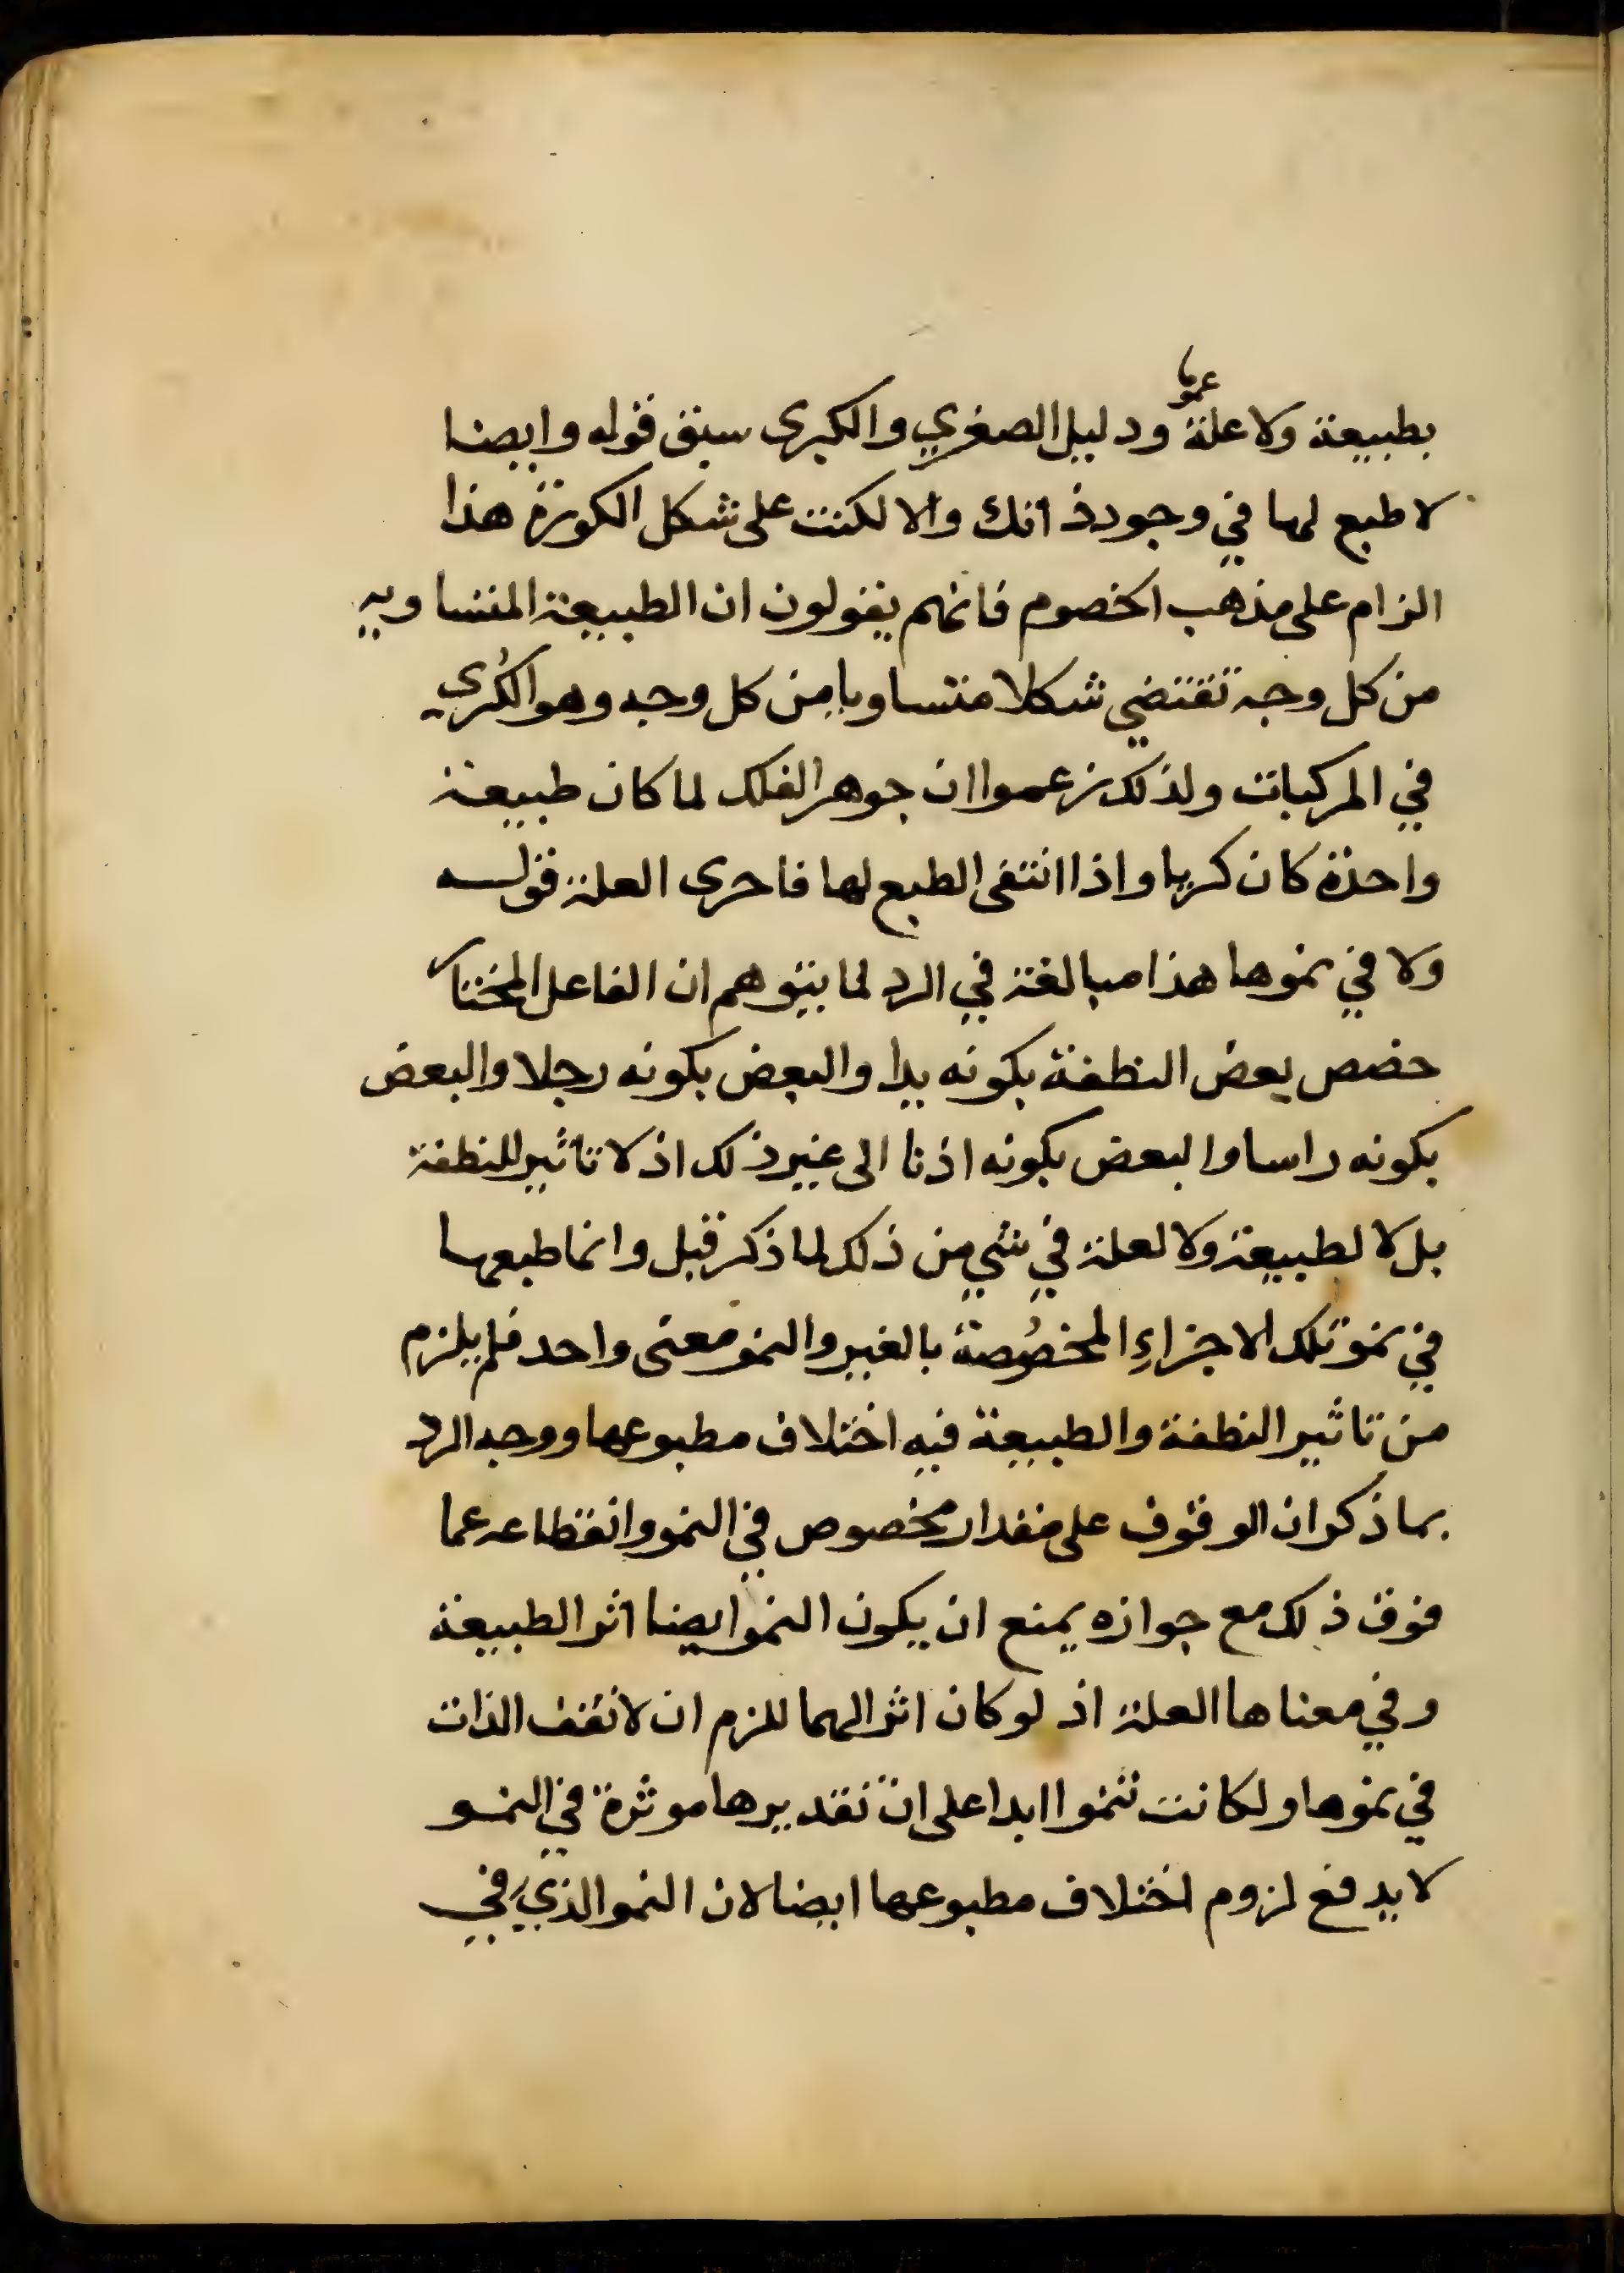 عموما
بطبيعة ولا علة ودليل الصغري والكبرى سبق قوله وايضا
لا طبع لها في وجود ذاتك والا لكنت على شكل الكورة هذا
الزام على مذهب الخصوم فانهم يقولون ان الطبيعة المتساويه
من كل وجه تقتضي شكلا متساويا من كل وجه وهو الكُري
في المركبات ولذلك زعموا ان جوهر الفلك لما كان طبيعة
واحدة كان كريا واذا انتفى الطبع لها فاحرى العلة قوله
ولا في نموها هذا مبالغة في الرد لما يتوهم ان الفاعل المختار
خصص بعض النطفة بكونه يدا والبعض بكونه رجلا والبعض
بكونه راسا والبعض بكونه اذنا الى غير ذلك اذ لا تاثير للنطفة
بل لا لطبيعة ولا لعلة في شي من ذلك لما ذكر قبل وانما طبعها
في نمو تلك الاجزاءِ المخصُوصة بالغير والنمو معنى واحد فلم يلزم
من تاثير النطفة والطبيعة فيه اختلاف مطبوعها ووجه الرد
بما ذكر ان الوقوف على مقدار مخصوص في النمو وانقطاعه عما
فوق ذلك مع جوازه يمنع ان يكون النمو ايضا اثر الطبيعة
وفي معناها العلة اذ لو كان اثرا لهما للزم ان لا تقف الذات
في نموها ولكانت تنموا ابدا على ان تقديرها موثرة في النمو
لا يدفع لزوم اختلاف مطبوعها ايضا لان النمو الذي في